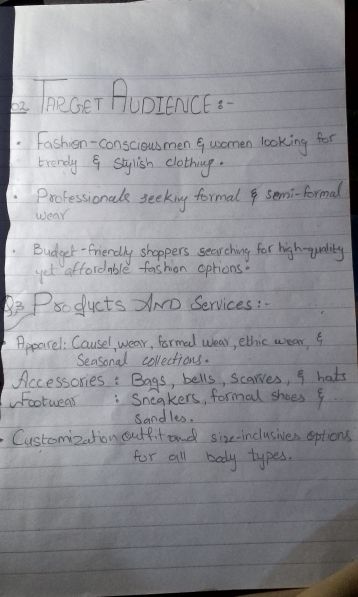 02 TARGET AUDIENCE :-
• Fashion-conscious men & women looking for
trendy & stylish clothing.
• Professionals seeking formal & semi-formal
wear
• Budget-friendly shoppers searching for high-quality
yet affordable fashion options.
Q3 Products AND Services:-
• Apparel: Causel, wear, formal wear, ethic wear, &
Seasonal collections.
Accessories : Bags, bells, scarves, & hats
Footwear : Sneakers, formal shoes &
sandles.
• Customization outfit and size-inclusives options
for all body types.